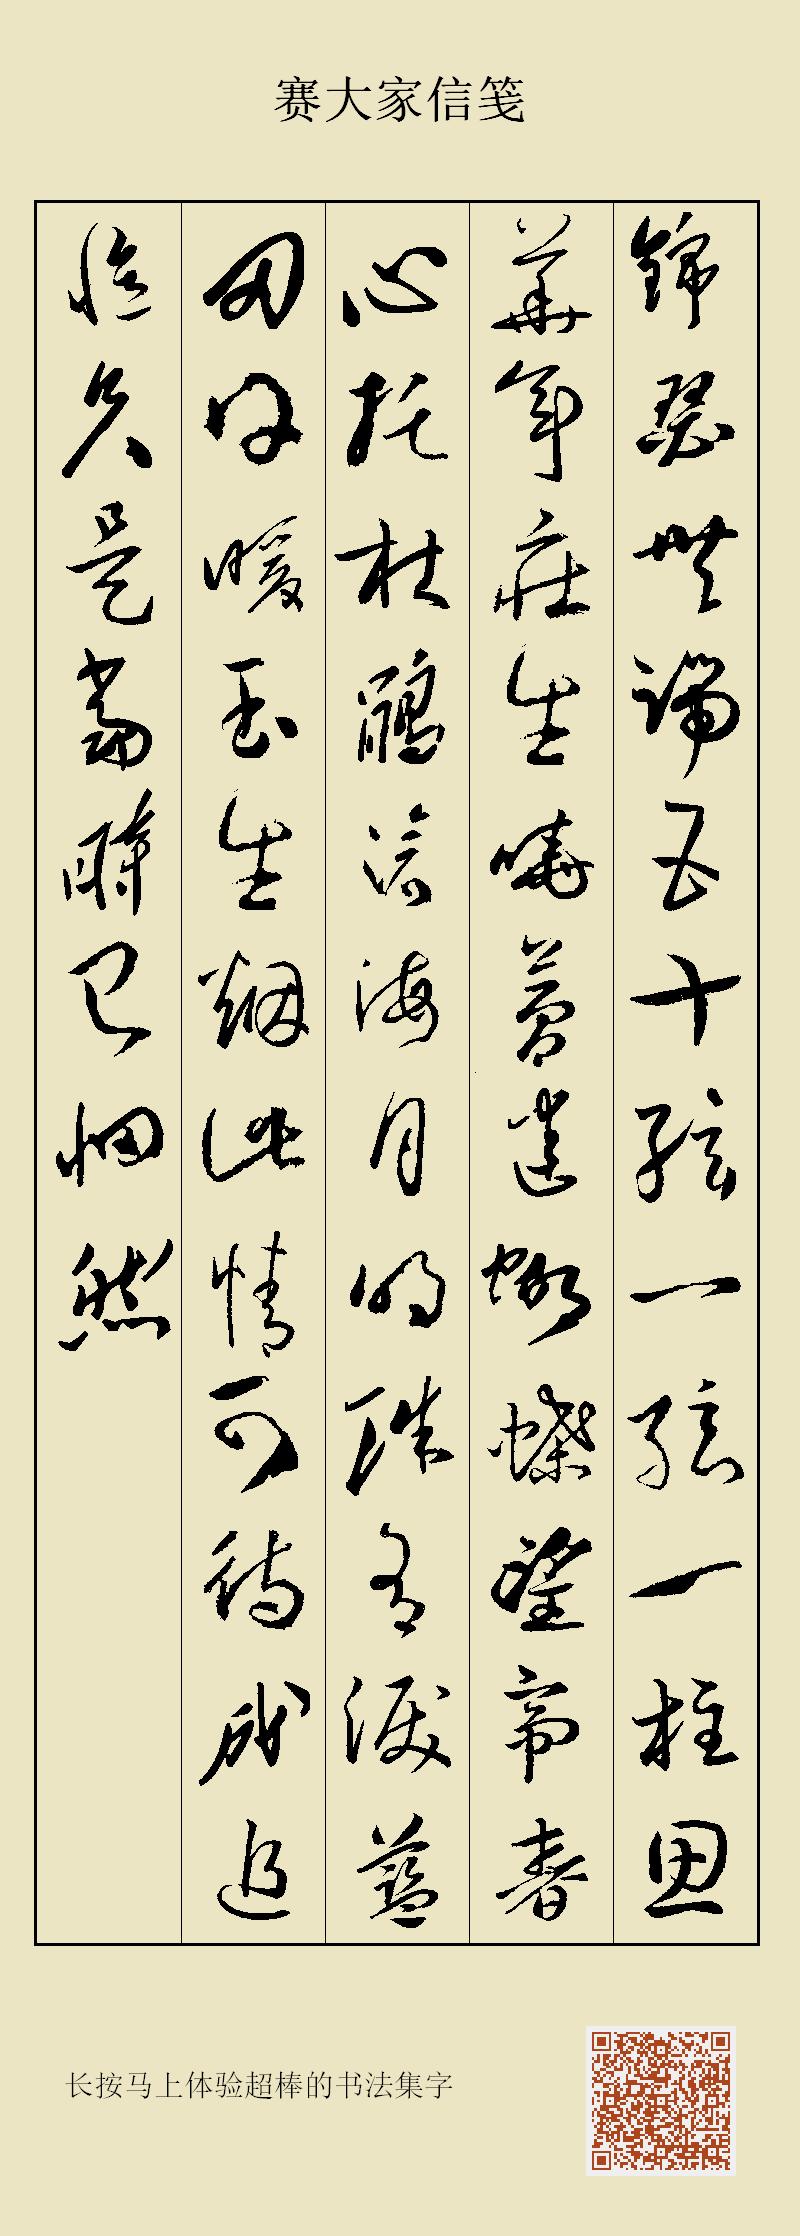 赛大家信笺
錦瑟無端五十弦一弦一柱思
華年莊生曉夢迷蝴蝶望帝春
心托杜鵑滄海月明珠有淚藍
田日暖玉生烟此情可待成追
憶只是當時已惘然
长按马上体验超棒的书法集字